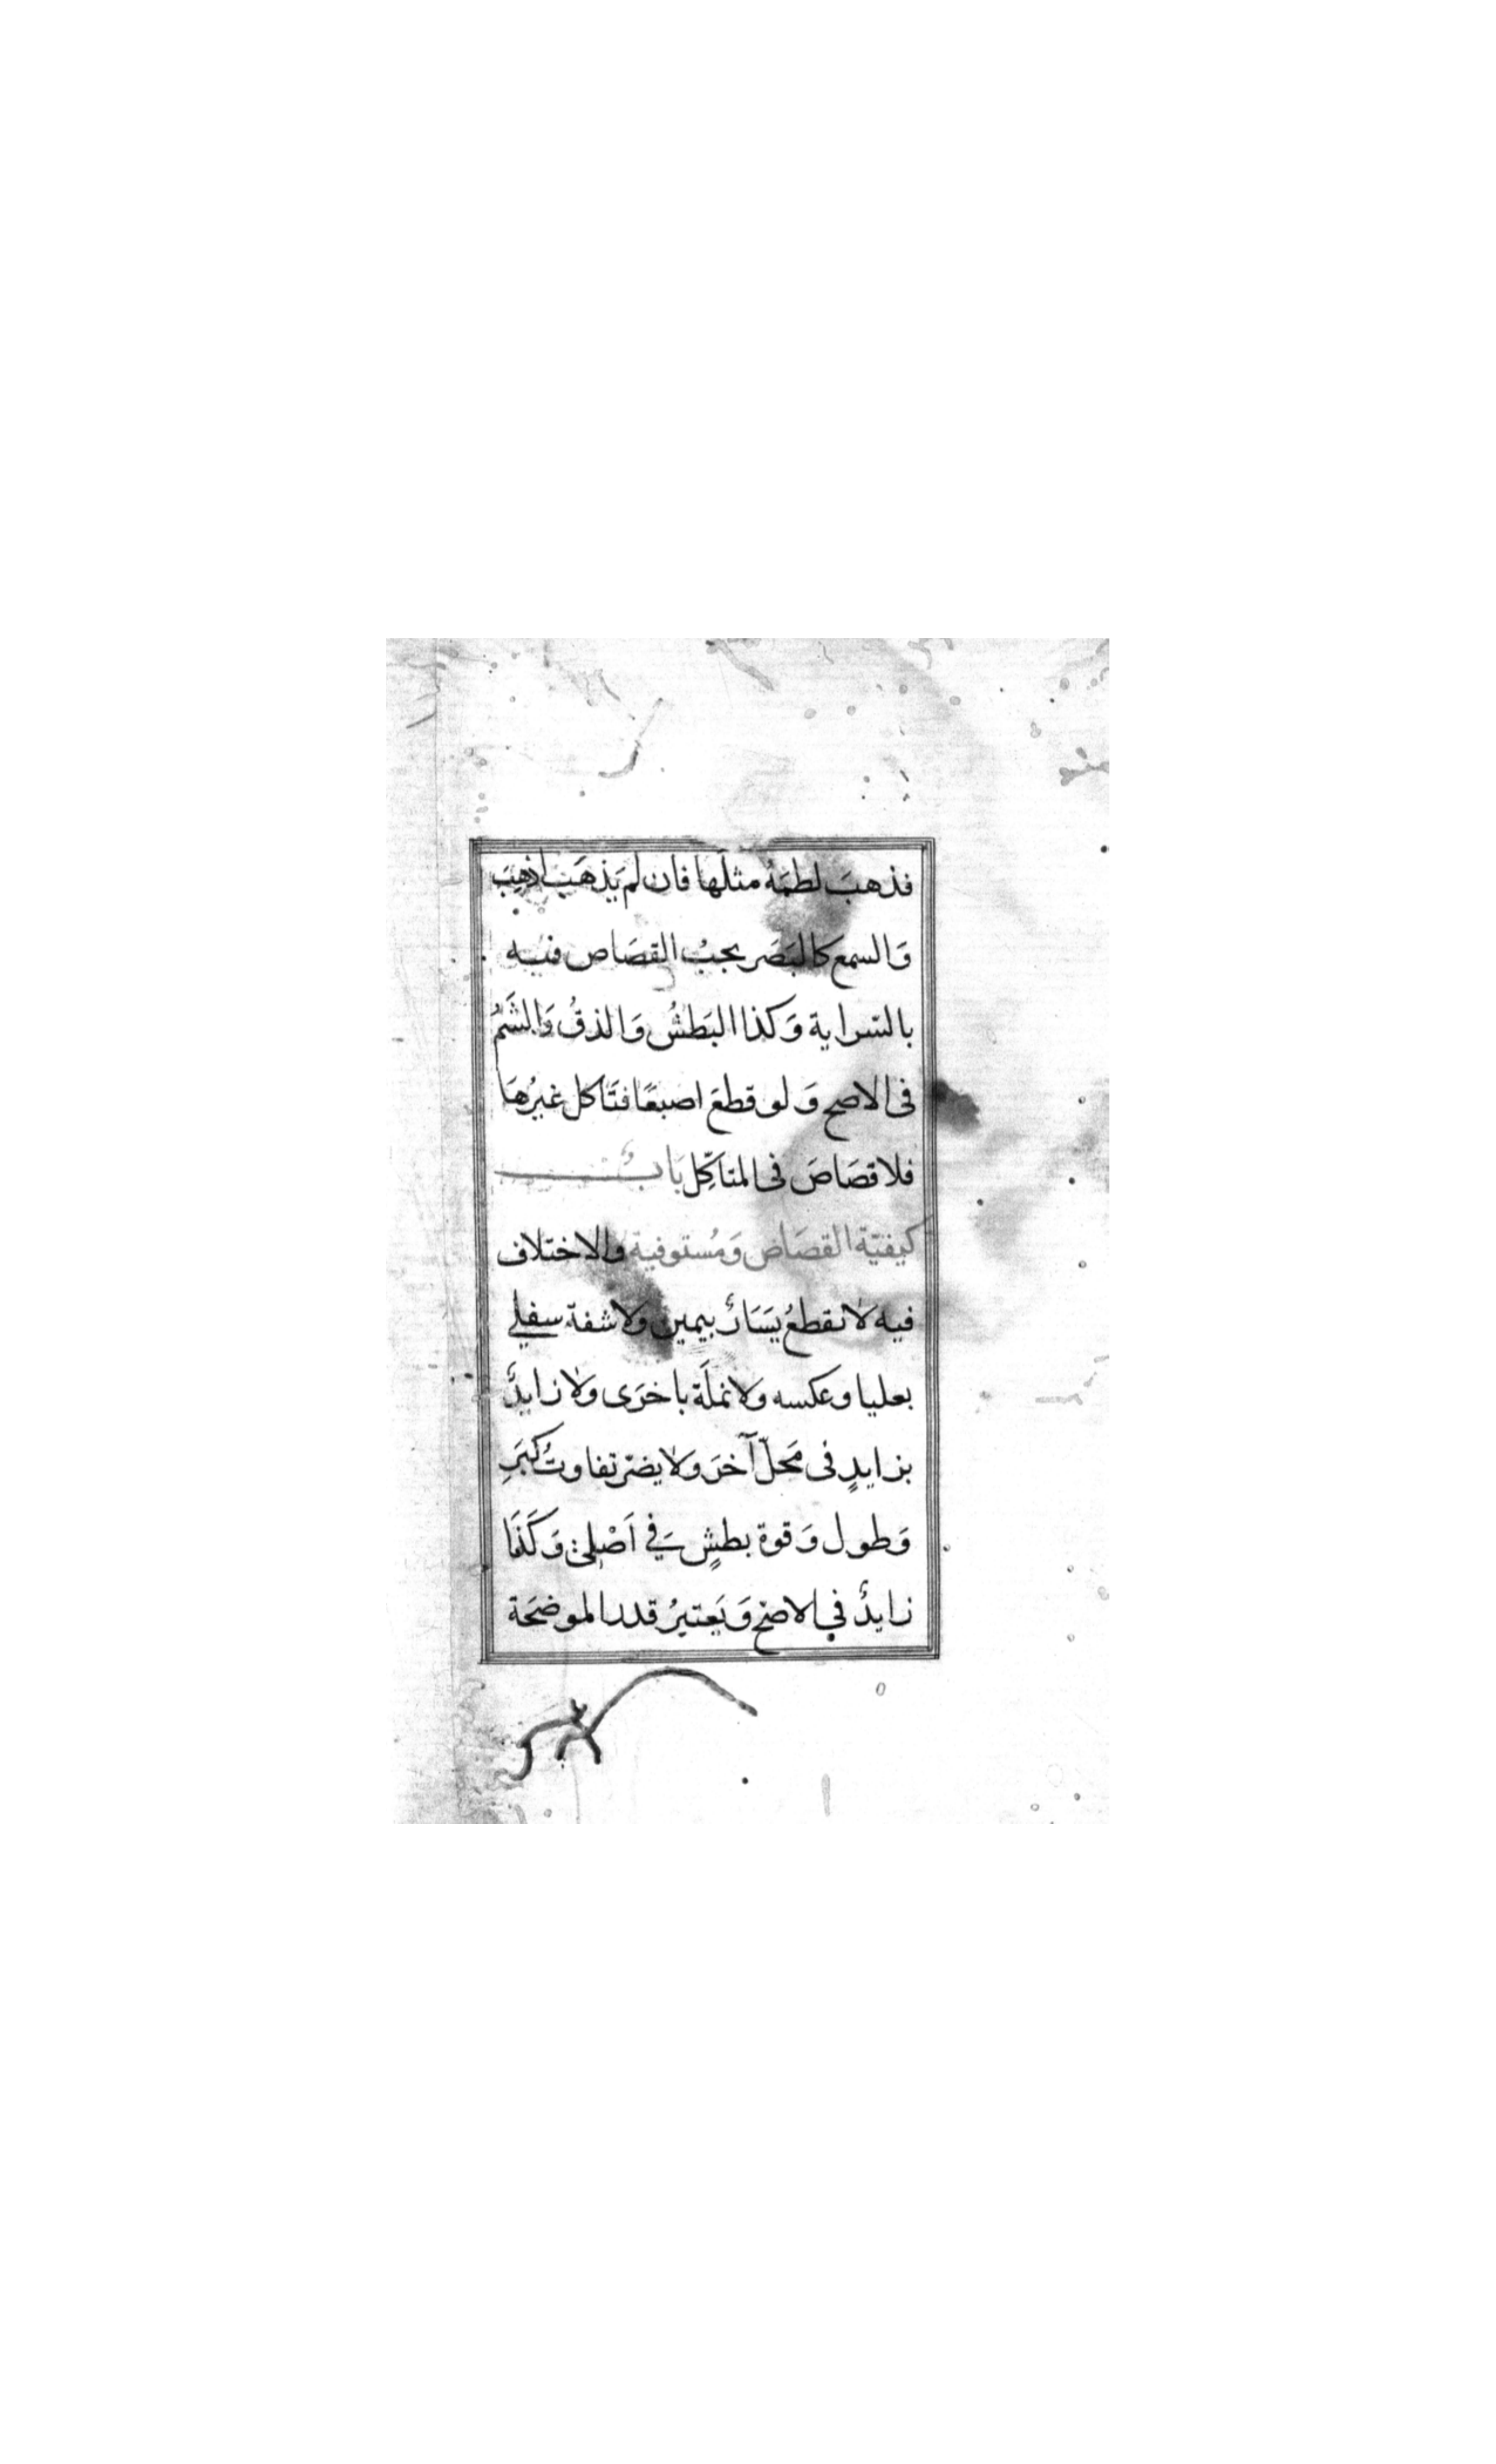 فذهبَ لطمَهُ مثلَها فان لم يَذهَب اُذهِبَ
وَالسمع كالبَصَر يجبُ القصَاص فيه
بالسّراية وَكذا البَطشُ وَالذوقُ وَالشَمُ
فى الاصح وَلو قطعَ اصبعًا فتَاكل غيرُهَا
فلا قصَاصَ فى المتاكِّل بَابُ
كيفيّة القصَاص وَمُستوفيه وَالاختلاف
فيه لا تقطعُ يَسَارٌ بيمين ولا شفة سفلي
بعليا وعكسه ولا نملَة باخرَى ولا زايدٌ
بزايدٍ فى مَحلّ آخرَ ولا يضرّ تفاوتُ كبَرِ
وَطول وَقوة بطشٍ في اَصْلىٍّ وَكَذَا
زايدٌ في الاصح وَيَعتبرُ قدر الموضحَة